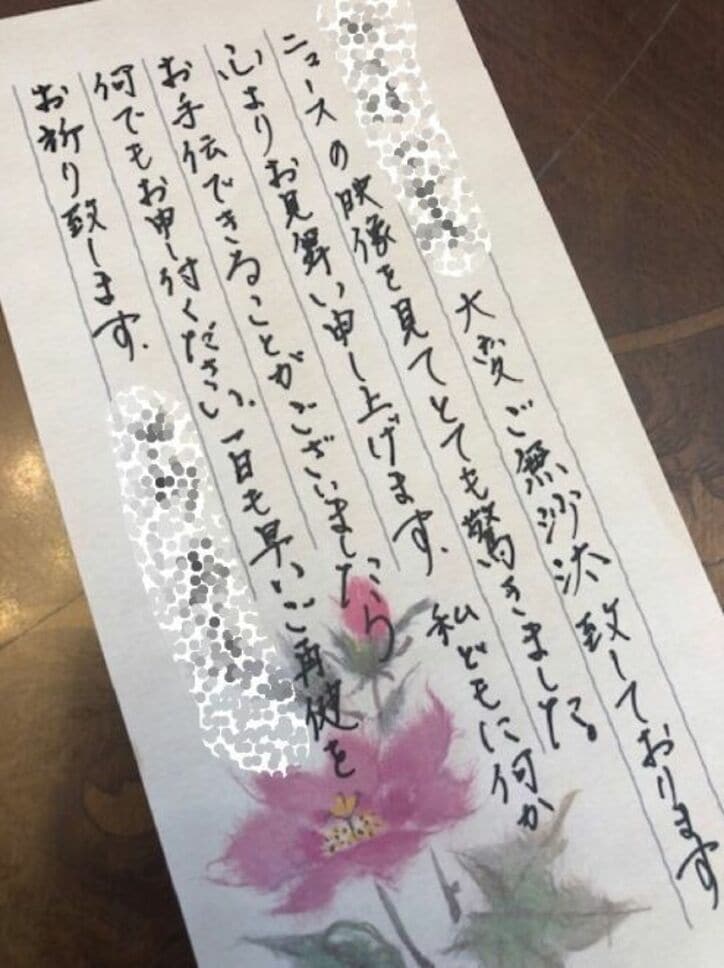 大変ご無沙汰致しております
ニュースの映像を見てとても驚きました。
心よりお見舞い申し上げます。私どもに何か
お手伝できることがございましたら
何でもお申し付ください。一日も早いご再健を
お祈り致します。